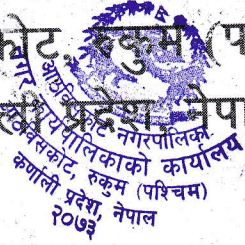 कोट, रुकुम (प
र्णाली प्रदेश, नेपा
आठबिसकोट नगरपालिका
नगर कार्यपालिकाको कार्यालय
आठबिसकोट, रुकुम (पश्चिम)
कर्णाली प्रदेश, नेपाल
२०७३